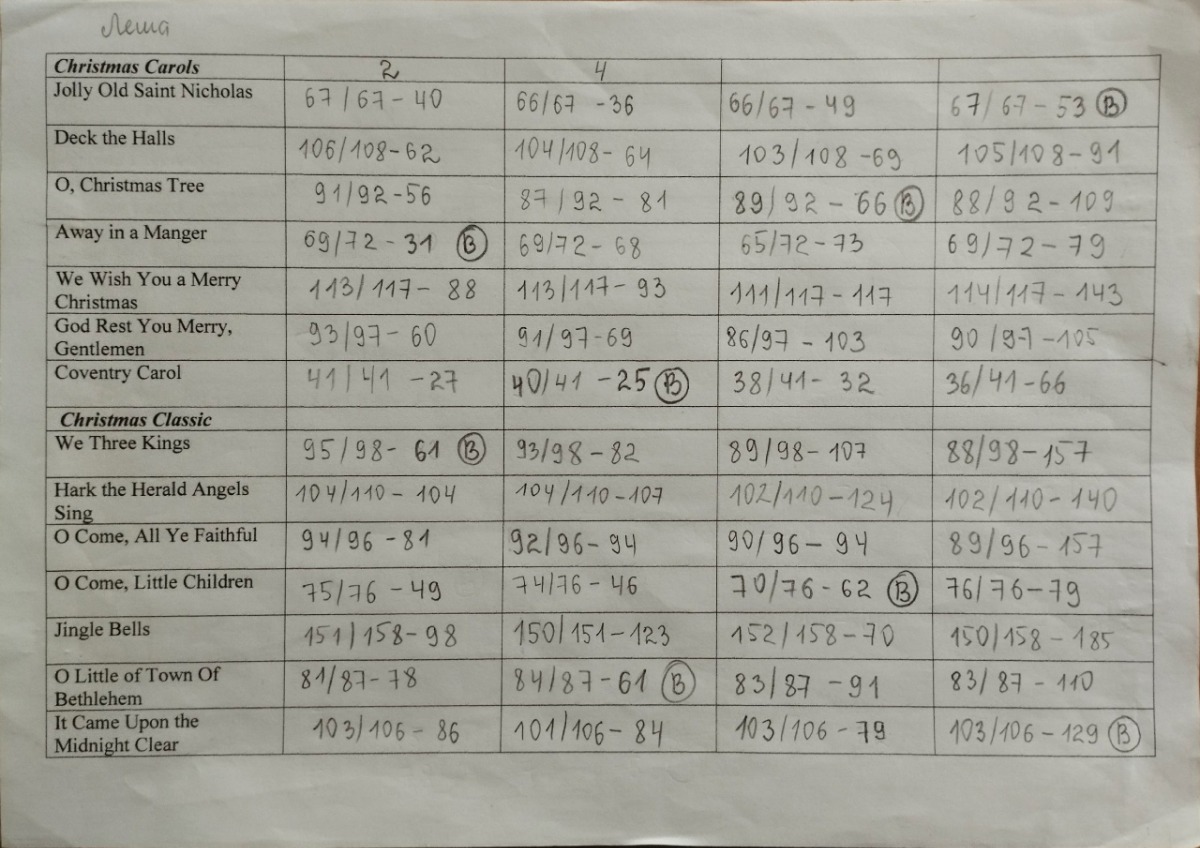 Леша
Christmas Carols 2 4
Jolly Old Saint Nicholas 67/67-40 66/67-36 66/67-49 67/67-53 B
Deck the Halls 106/108-62 104/108-64 103/108-69 105/108-91
O, Christmas Tree 91/92-56 87/92-81 89/92-66 B 88/92-109
Away in a Manger 69/72-31 B 69/72-68 65/72-73 69/72-79
We Wish You a Merry
Christmas 113/117-88 113/117-93 111/117-117 114/117-143
God Rest You Merry,
Gentlemen 93/97-60 91/97-69 86/97-103 90/97-105
Coventry Carol 41/41-27 40/41-25 B 38/41-32 36/41-66
Christmas Classic
We Three Kings 95/98-61 B 93/98-82 89/98-107 88/98-157
Hark the Herald Angels
Sing 104/110-104 104/110-107 102/110-124 102/110-140
O Come, All Ye Faithful 94/96-81 92/96-94 90/96-94 89/96-157
O Come, Little Children 75/76-49 74/76-46 70/76-62 B 76/76-79
Jingle Bells 151/158-98 150/151-123 152/158-70 150/158-185
O Little of Town Of
Bethlehem 81/87-78 84/87-61 B 83/87-91 83/87-110
It Came Upon the
Midnight Clear 103/106-86 101/106-84 103/106-79 103/106-129 B